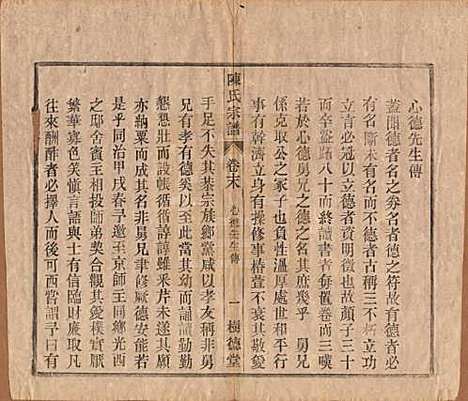 心德先生傳
蓋聞德者名之券名者德之符故有德者
必有名斷未有名而不德者古稱三不朽立功
立言必冠以立德者資明徵也故顏子三十
而卒谿路八十而終讀書者每置卷而三嘆
若於心德舅兄之德之名其庶幾乎 舅兄
係克取公之家子也負性溫厚處世和平行
事有幹濟立身有操修事椿萱不異其敬愛
陳氏宗譜
卷末
心德先生傳
一
樹德堂
手足不失其恭宗族鄉黨咸以孝友稱非舅
兄有孝有德矣從此也至於幼而誦讀勤勤
懇懇壯而設帳循循諄諄雖采芹未遂而
亦納粟而成其名非舅兄聿修厥德安能若
是乎同治甲戌春予邀至京師王同鄉光西
之邸舍賓王相投師弟契合觀其愛樸實而不
繁華寡色笑慎言語與士有信臨財廉取凡
往來酬酢者必擇人而與可西嘗謂予曰有